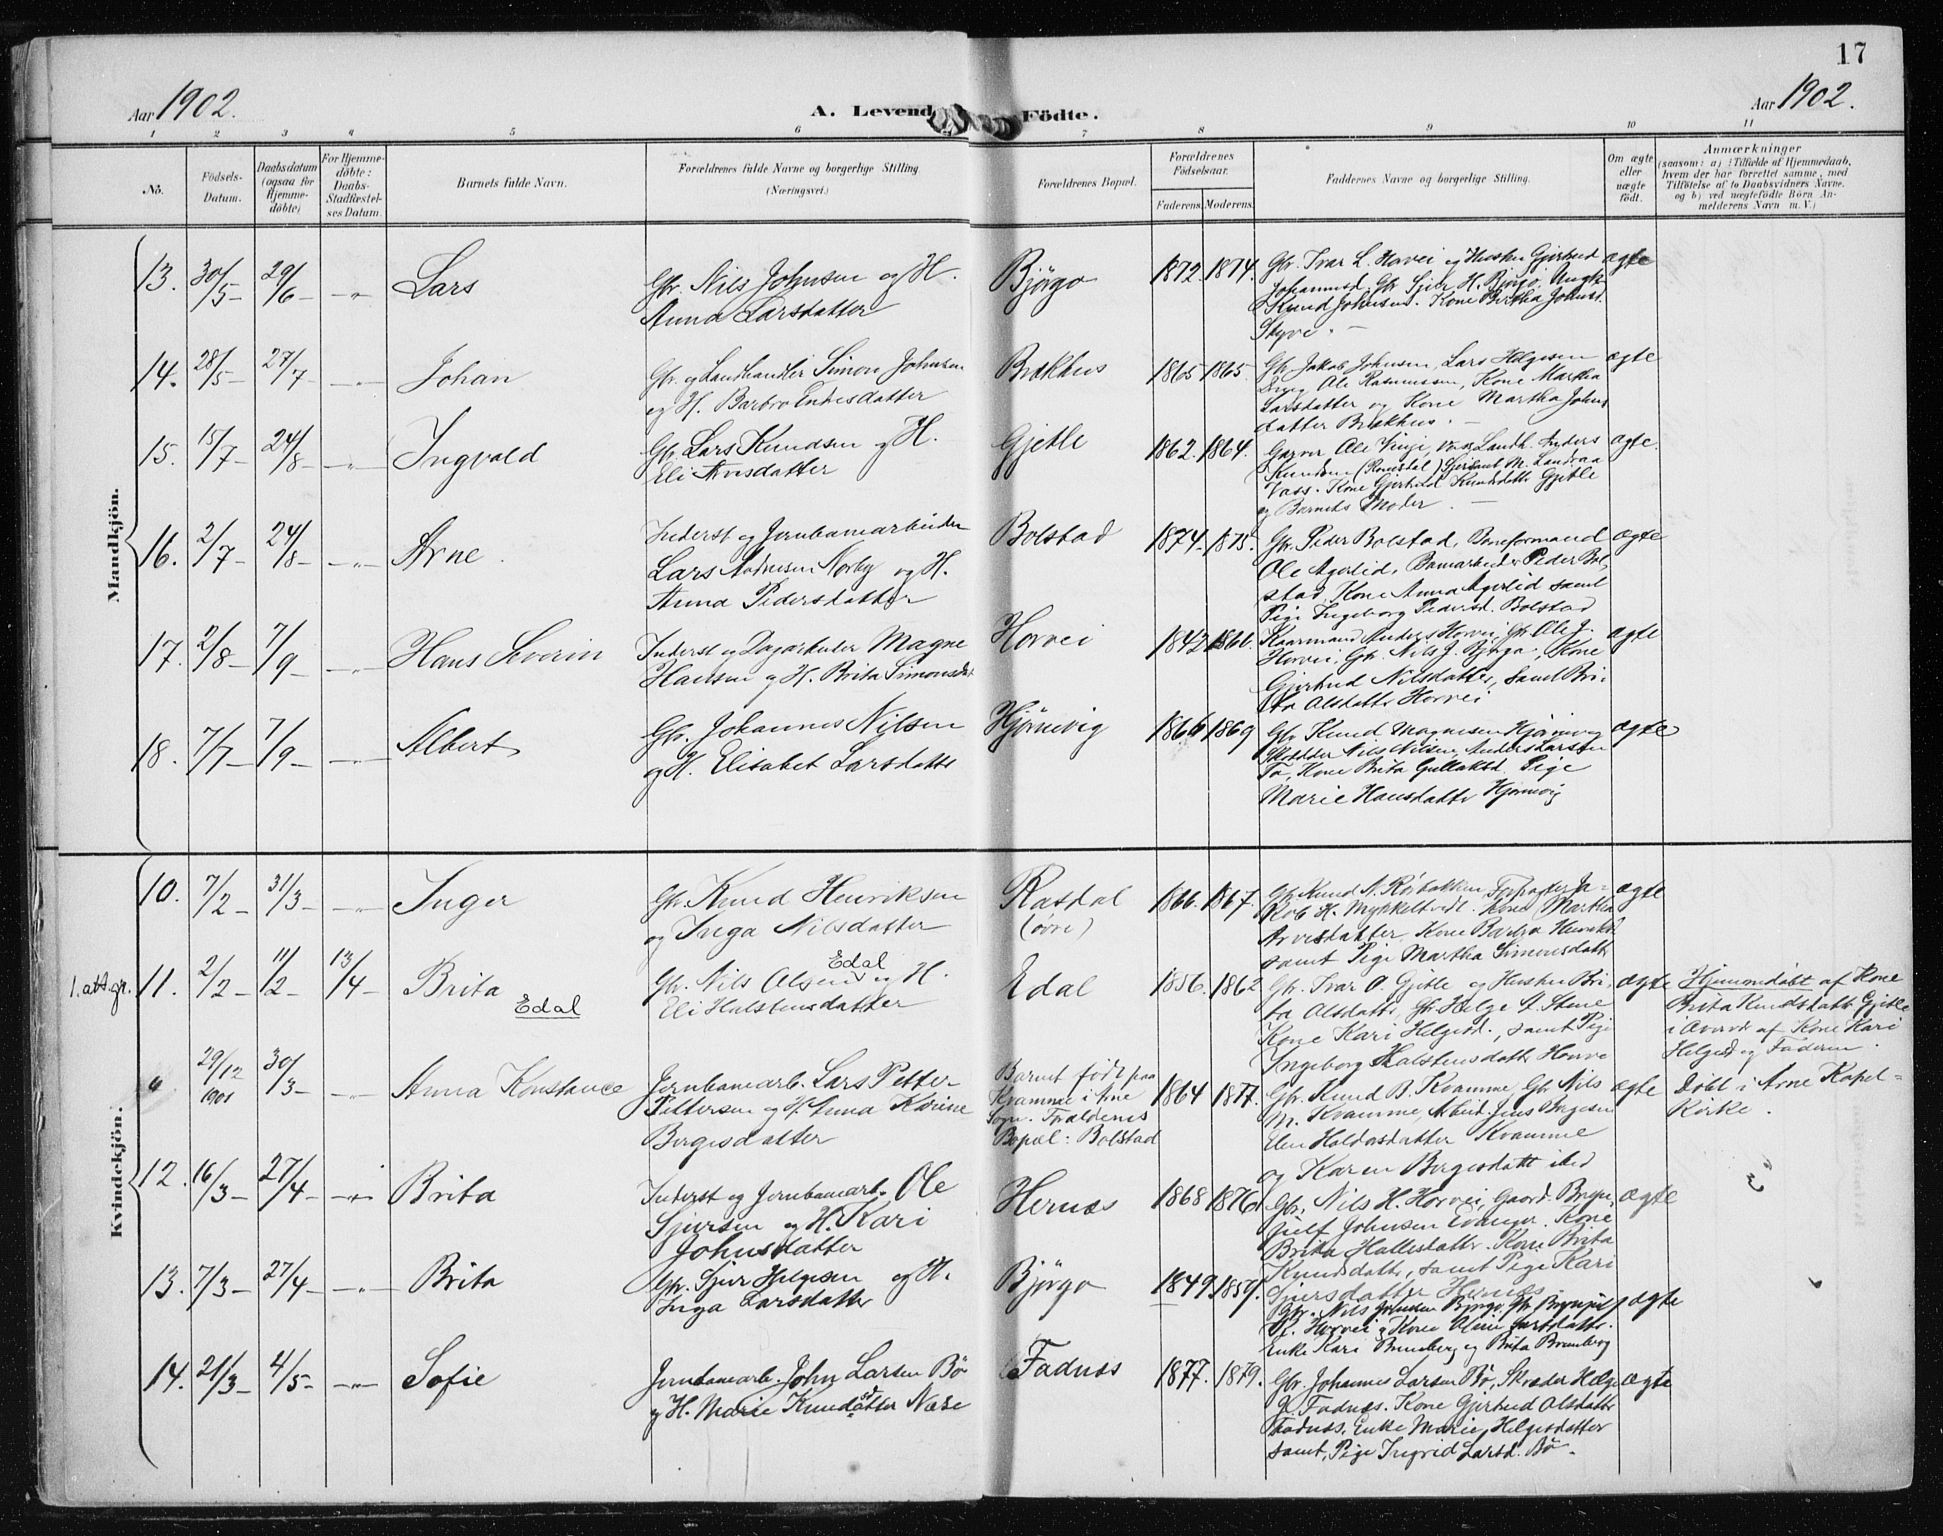 17
Aar 1902.
A. Levend Födte.
Aar 1902.
1 2 3 4 5 6 7 8 9 10 11
No.
Födsels-Datum.
Daabsdatum (ogsaa for Hjemme-döbte)
For Hjemme-döbte: Daabs-Stadfæstelses Datum
Barnets fulde Navn.
Forældrenes fulde Navne og borgerlige Stilling
(Næringsvei.)
Forældrenes Bopæl.
Forældrenes Födselsaar.
Faderens. Moderens.
Faddernes Navne og borgerlige Stilling.
Om ægte eller uægte födt.
Anmærkninger
(saasom: a) i Tilfælde af Hjemmedaab,
hvem der har forrettet samme, med
Tilföielse af to Daabsvidners Navne.
og b) ved uægtefödte Börn An-
melderens Navn m. V.)
Mandkjön.
13. 30/5 29/6 Lars
Gbr. Nils Johnsen og H.
Anna Larsdatter
Bjørgo 1872. 1874.
Gbr. Ivar L. Horvei og Hustru Gjertrud
Johannesd. Gbr. Sjur H. Bjørgo. Ungk.
Knud Johnsen. Kone Brita Johnsd.
Styve.
ægte
14. 28/5 27/7 Johan
Gbr. og Landhandler Simon Johnsen
og H. Barbro Endresdatter
Brækhus 1865 1865.
Gbr. Jakob Johnsen, Lars Helgesen
Ole Rasmussen, Kone Martha
Larsdatter og Kone Martha Johns
datter Brækhus.
ægte
15. 15/7 24/8 Ingvald
Gbr. Lars Knudsen og H.
Eli Arvesdatter
Gjetle 1862. 1864.
Garver Ole Vinje, Landh. Anders
Knudsen
Vass. Kone Gjertrud Knudsdatter Gjetle
og Barnets Moder.
ægte.
16. 2/7 24/8 Arne.
Inderst og Jernbanearbeider
Lars Andresen Nørby og H.
Anna Pedersdatter
Bolstad 1874. 1875.
Gbr. Peder Bolstad, Baneformand
Ole Agerlid, Banearbeider Peder Bol
stad, Kone Anna Agerlid samt
Pige Ingeborg Pedersd. Bolstad
ægte
17. 2/8 7/9 Hans Severin
Inderst og Dagarbeider Magne
Hansen og H. Brita Simonsdat
Horvei 1842 1860.
Kaarmand Anders Horvei, Gbr. Ole J.
Horvei, Gbr. Nils J. Bjørgo, Kone
Gjertrud Nilsdatter, samt Bri-
ta Olsdatter Horvei
ægte
18. 7/7 7/9 Albert
Gbr. Johannes Nilsen
og H. Elisabet Larsdatter
Hjørnevig 1866 1869
Gbr. Knud Magnesen Hjørnevig
Nils Nilsen, Anders Larssen
Fa, Kone Brita Gullaksd. Pige
Marie Hansdatter Hjørnevig
ægte
Kvindekjön.
10. 7/2 31/3 Inger
Gbr. Knud Henriksen
og Inga Nilsdatter
Rasdal
(øvre)
1866. 1867.
Gbr. Knud N. Rørbakken Forpagter Ja-
kob H. Mykkeltvedt. Kone Martha
Arvesdatter, Kone Barbro Henriksd.
samt Pige Martha Simonsdatt
ægte
1. att. gr. 11. 2/2 11/2 13/4 Brita
Edal
Gbr. Nils Olsen Edal og H.
Eli Halstensdatter
Edal 1856. 1862
Gbr. Ivar O. Gjetle og Hustru Bri
ta Olsdatter, Gbr. Helge A. Stene
Kone Kari Helgesd., samt Pige
Ingeborg Halstensdatter Horve
ægte
Hjemmedøbt af Kone
Brita Knudsdatter Gjetle
i Overvær af Kone Kari
Helgesd. og Faderen.
29/12 1901 30/3 Anna Konstance
Jernbanearb. Lars Petter
Pettersen og H. Anna Karine
Børgesdatter
Barnet født paa
Kvamme i Arne
Sogn. Forældrenes
Bopæl: Bolstad
1864 1877.
Gbr. Knud B. Kvamme, Gbr. Nils
M. Kvamme, Arbeid. Jens Børgesen
Elen Haldorsdatter Kvamme
og Karen Børgesdatt ibid
ægte
Døbt i Arne Kapel-
Kirke.
12. 16/3 27/4 Brita
Inderst og Jernbanearb. Ole
Sjursen og H. Kari
Johnsdatter
Hernæs 1868 1876
Gbr. Nils H. Horvei, Gaard. Bryn-
julf Johnsen Evanger. Kone
Brita Hallesdatter. Kone Brita
Knudsdatter, samt Pige Kari
Sjursdatter Hernæs
ægte
13. 7/3 27/4 Brita
Gbr. Sjur Helgesen og H.
Inga Larsdatter
Bjørgo 1849. 1859.
Gbr. Nils Johnsen Bjørgo, Gbr. Brynjulf
K. Horvei og Kone Larsdatter.
Enke Kari Brunborg og Brita Brunborg
ægte
14. 21/3 4/5 Sofie
Jernbanearb. John Larsen Bø
og H. Marie Knudsdatter Næse
Fadnæs 1877. 1879.
Gbr. Johannes Larsen Bø, Skræder Helge
J. Fadnæs. Kone Gjertrud Olsdatter
Fadnæs, Enke Marie Helgesdatter
samt, Pige Ingrid Larsd. Bø.
ægte